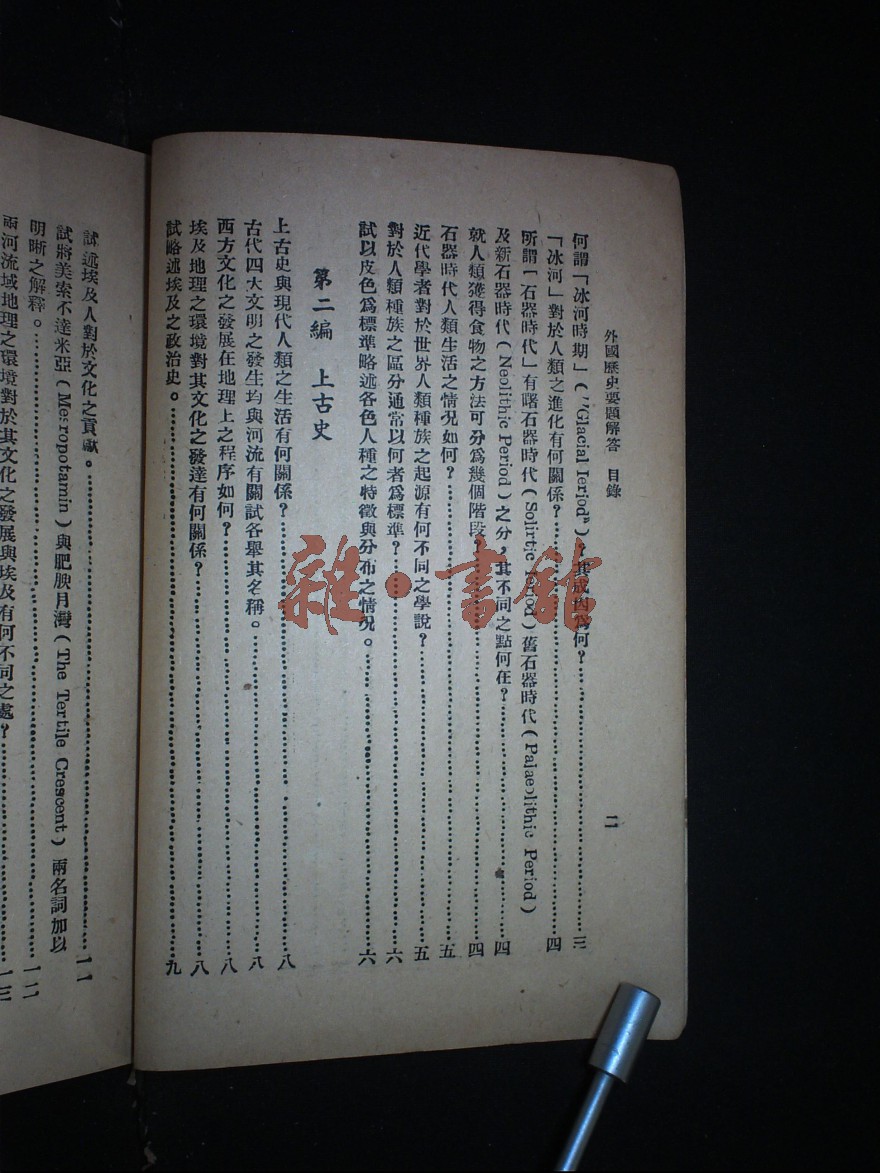 外國歷史要題解答 目錄 二
何謂「冰河時期」(“Glacial Ieriod”)？其成因爲何？……三
「冰河」對於人類之進化有何關係？……四
所謂「石器時代」有曙石器時代(Solirtic Period)舊石器時代(Palaeolithic Period)
及新石器時代(Neolithic Period)之分，其不同之點何在？……四
就人類獲得食物之方法可分爲幾個階段？……四
石器時代人類生活之情況如何？……五
近代學者對於世界人類種族之起源有何不同之學說？……五
對於人類種族之區分通常以何者爲標準？……六
試以皮色爲標準略述各色人種之特徵與分布之情況。……六
第二編 上古史
上古史與現代人類之生活有何關係？……八
古代四大文明之發生均與河流有關試各舉其名稱。……八
西方文化之發展在地理上之程序如何？……八
埃及地理之環境對其文化之發達有何關係？……八
試略述埃及之政治史。……九
試述埃及人對於文化之貢獻。……一一
試將美索不達米亞(Mesropotamin)與肥腴月灣(The Tertile Crescent)兩名詞加以
明晰之解釋。……一二
兩河流域地理之環境對於其文化之發展與埃及有何不同之處？……一三
雜·書館